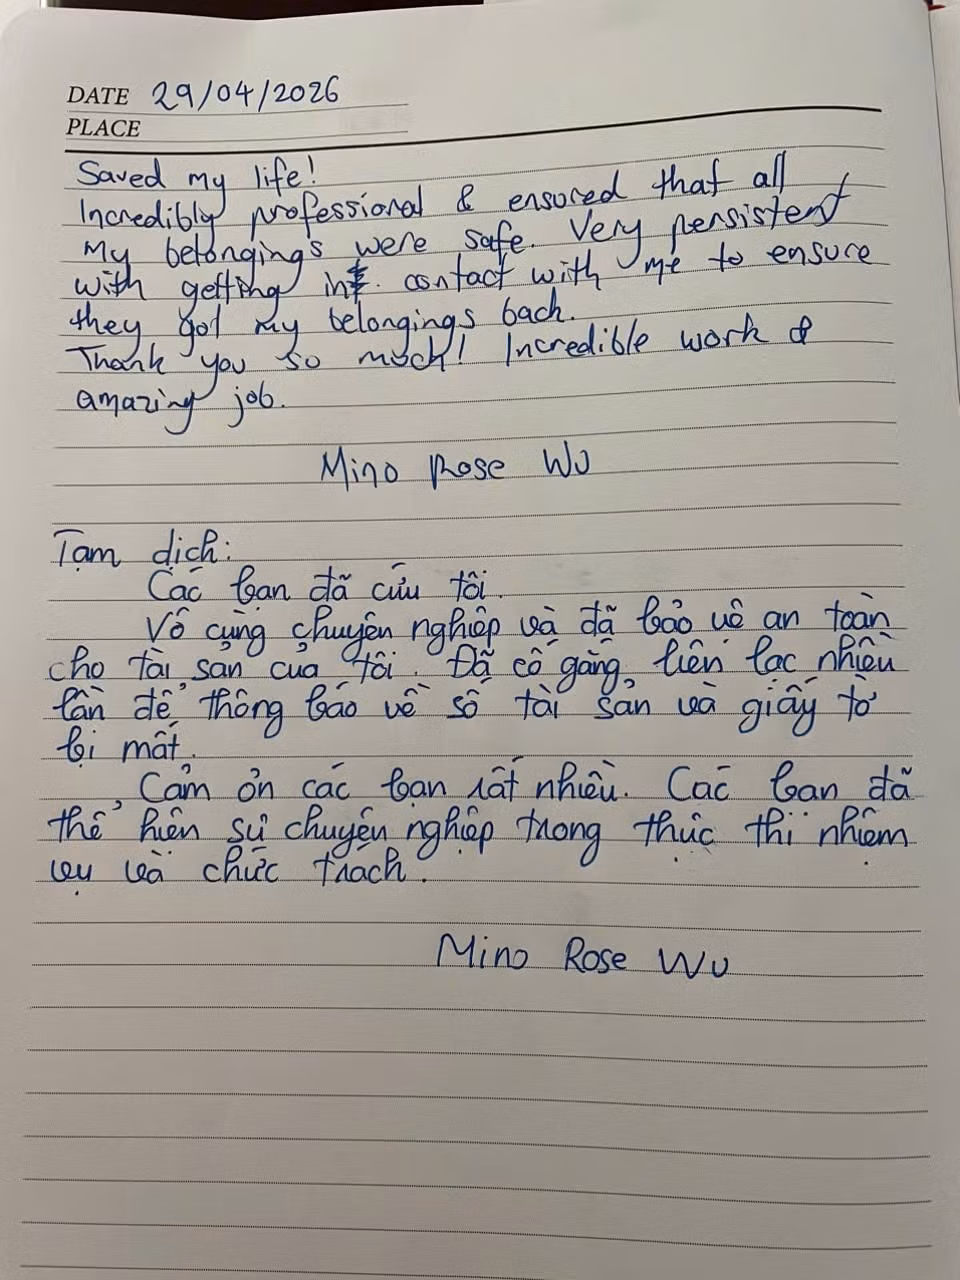 DATE 29/04/2026
PLACE
Saved my life!
Incredibly professional & ensured that all
My belongings were safe. Very persistent
with getting in contact with me to ensure
they got my belongings back.
Thank you so much! Incredible work &
amazing job.
Mino Rose Wu
Tạm dịch:
Các bạn đã cứu tôi.
Vô cùng chuyên nghiệp và đã bảo vệ an toàn
cho tài sản của tôi. Đã cố gắng liên lạc nhiều
lần để thông báo về số tài sản và giấy tờ
bị mất.
Cảm ơn các bạn rất nhiều. Các bạn đã
thể hiện sự chuyên nghiệp trong thực thi nhiệm
vụ và chức trách.
Mino Rose Wu